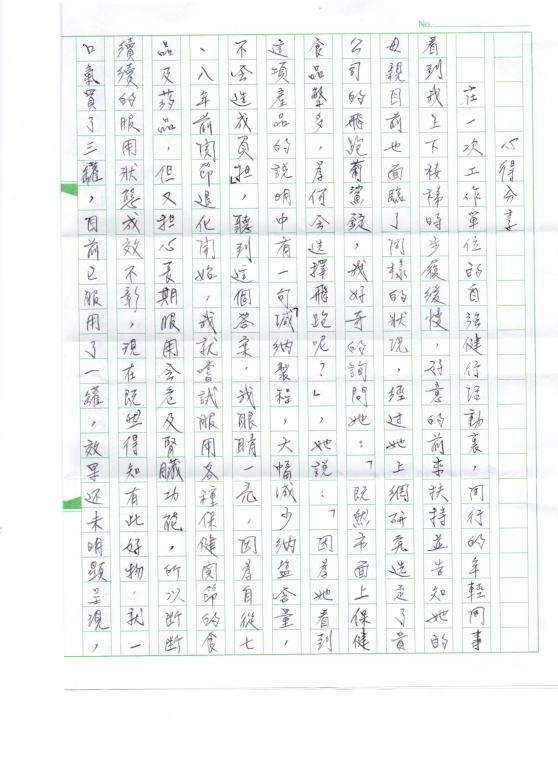 No.
心得分享
在一次工作單位的自強健行活動裏，同行的年輕同事
看到我上下樓梯時步履緩慢，好意的前來扶持並告知她的
母親目前也面臨了同樣的狀況，經過她上網研究選定了貴
公司的飛跑葡萄鯊錠，我好奇的詢問她：「既然市面上保健
食品繁多，為何會選擇飛跑呢？」，她說：「因為她看到
這項產品的說明中有一句『減納製程，大幅減少納鹽含量，
不會造成負擔』，聽到這個答案，我眼睛一亮，因為自從七
、八年前關節退化開始，我就嚐試服用各種保健關節的食
品及葯品，但又担心長期服用會危及腎臟功能，所以斷斷
續續的服用狀態成效不彰，現在既然得知有此好物，就一
口氣買了三罐，目前已服用了一罐，效果还未明顯呈現，